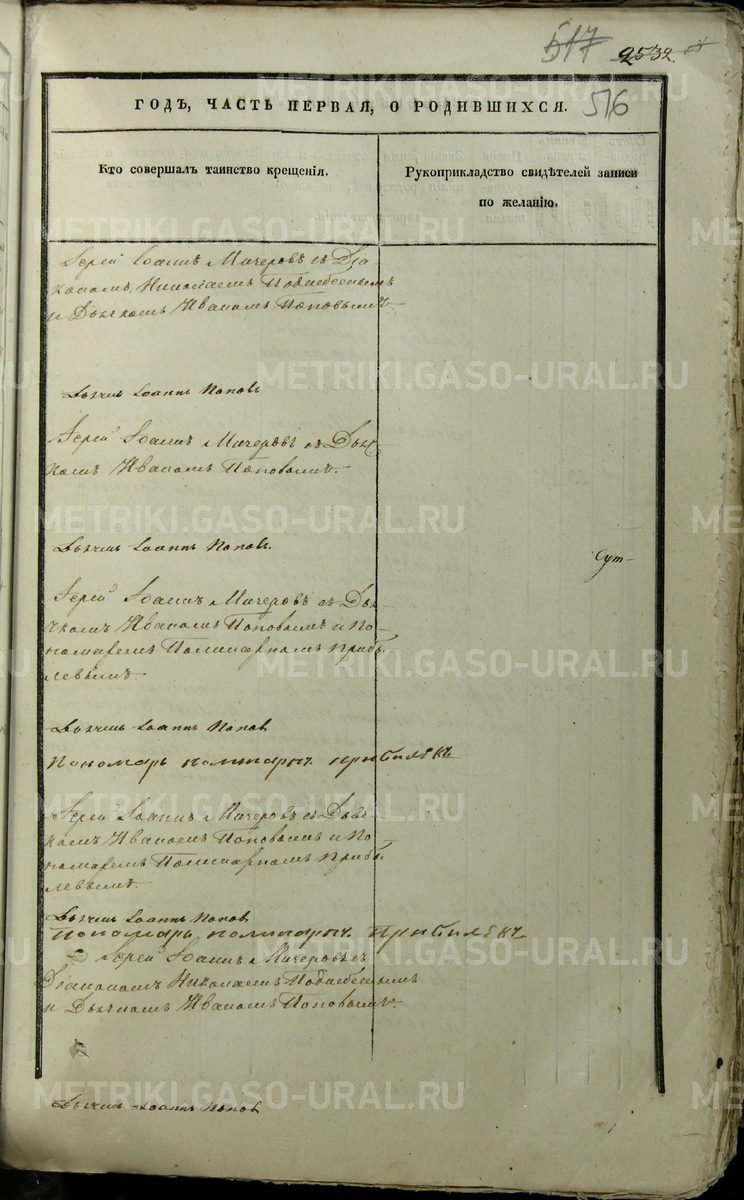 517
2532.
ГОДЪ, ЧАСТЬ ПЕРВАЯ, О РОДИВШИХСЯ.
516
Кто совершалъ таинство крещенія.
Рукоприкладство свидѣтелей записи
по желанію.
Іерей Іоаннъ Мичеровъ съ Діа-
кономъ Николаемъ
и Дьячкомъ Иваномъ Поповымъ.
Дьячекъ Іоаннъ Поповъ
Іерей Іоаннъ Мичеровъ съ Дьяч
комъ Иваномъ Поповымъ.
Дьячекъ Іоаннъ Поповъ.
Сут-
Іерей Іоаннъ Мичеровъ съ Дья-
чкомъ Иваномъ Поповымъ и По-
номаремъ Поликарпомъ Прибы
левымъ.
Дьячекъ Іоаннъ Поповъ
Пономарь Поликарпъ
Іерей Іоаннъ Мичеровъ съ Дьяч
комъ Иваномъ Поповымъ и По
номаремъ Поликарпомъ Прибы
левымъ.
Дьячекъ Іоаннъ Поповъ
Пономарь Поликарпъ
Іерей Іоаннъ Мичеровъ съ
Діакономъ Николаемъ
и Дьячкомъ Иваномъ Поповымъ.
Дьячекъ Іоаннъ Поповъ
METRIKI.GASO-URAL.RU